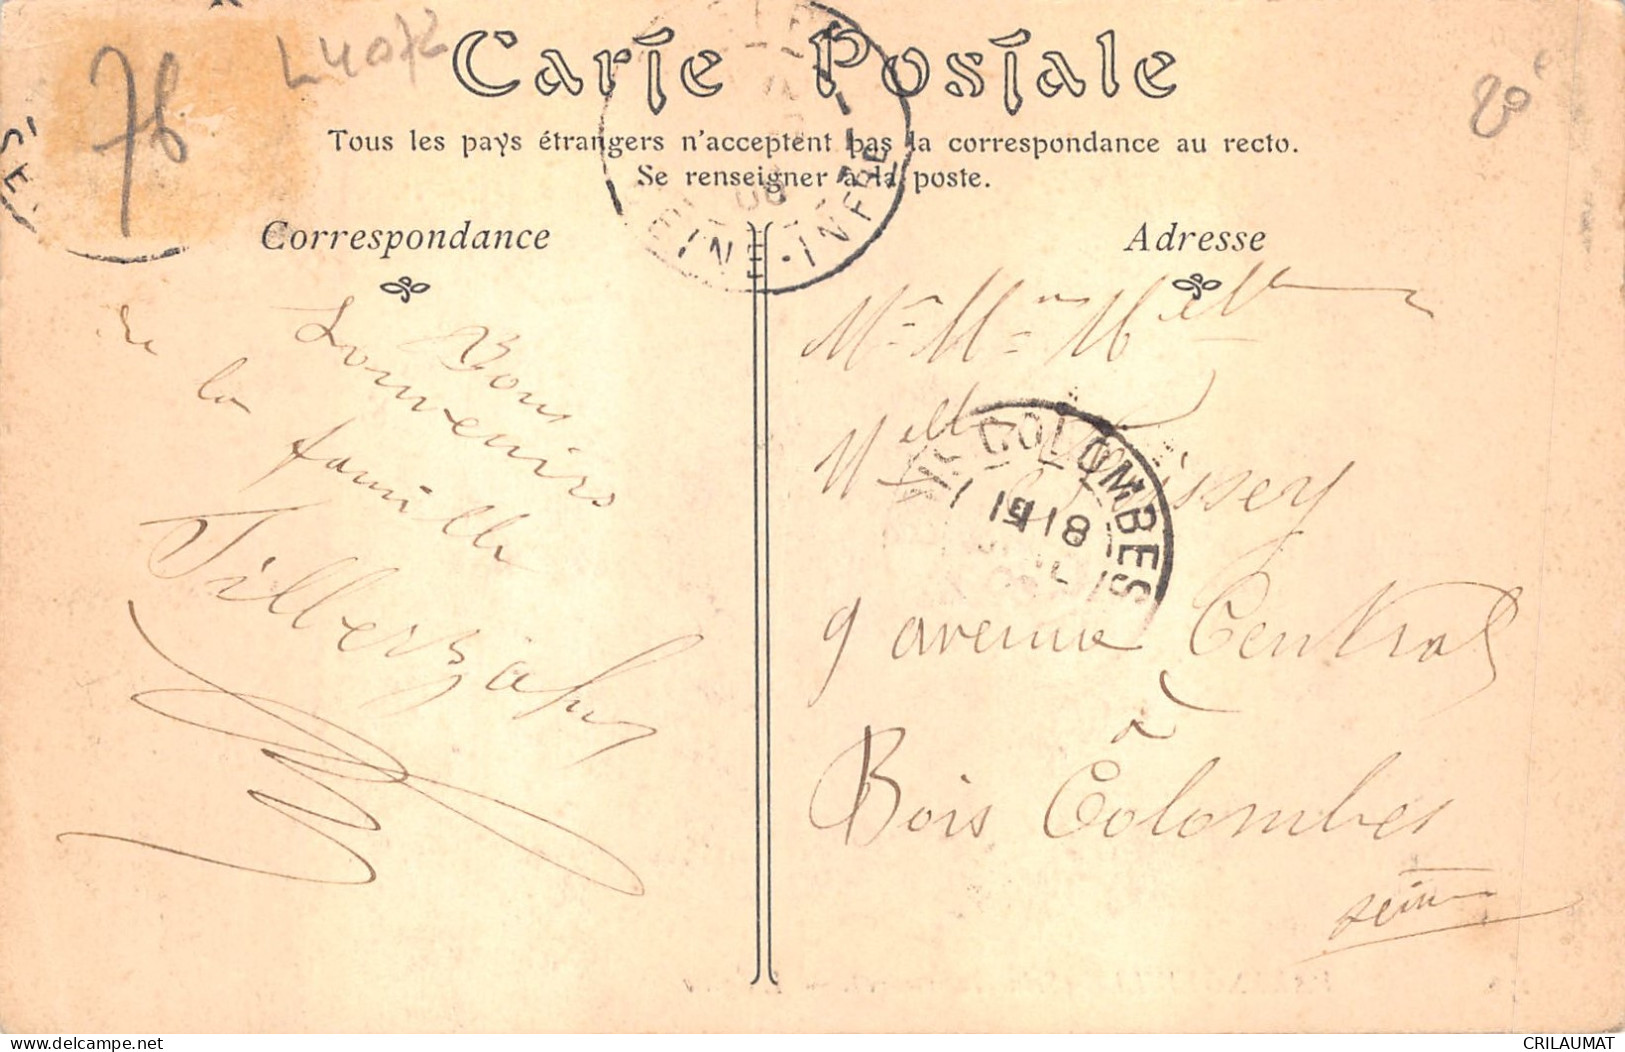 76
L4072
Carte Postale
20€
Tous les pays étrangers n'acceptent pas la correspondance au recto.
Se renseigner à la poste.
08
SEINE-INFRE
Correspondance
Adresse
Bons
Souvenirs
de la famille
Silberzahn
Mr Mme Melle
Melle
9 avenue Central
à
Bois Colombes
Seine
COLOMBES
CRILAUMAT